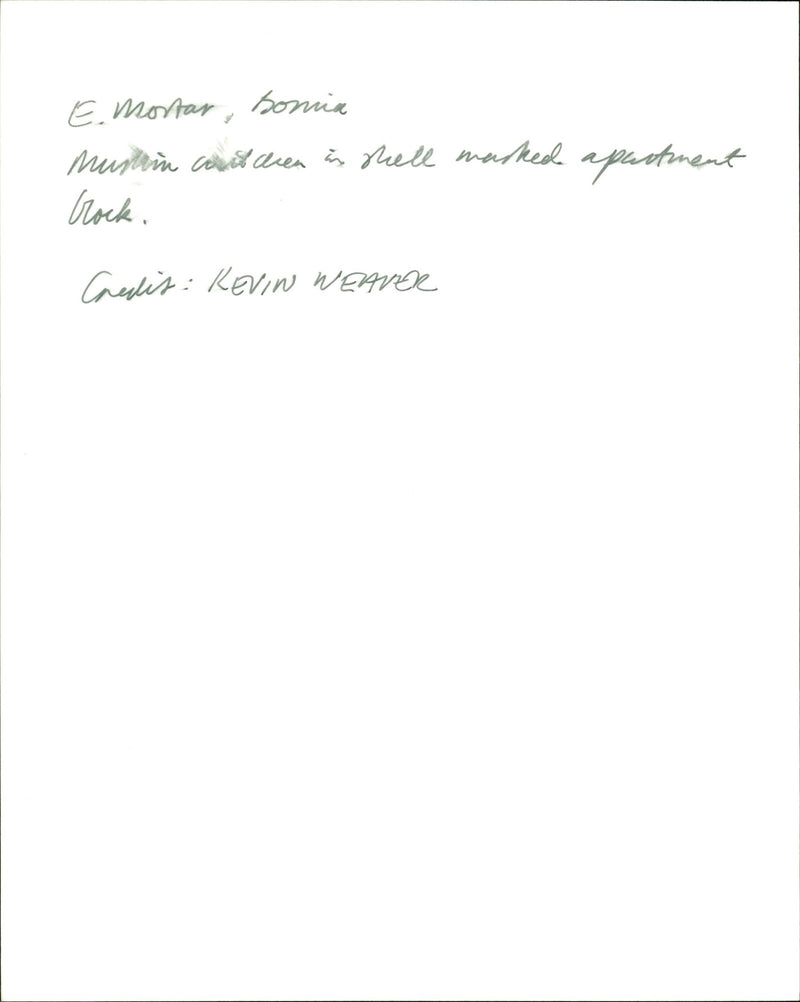 E. Mostar, Bosnia
Muslim children in shell marked apartment
block.
Credit: KEVIN WEAVER